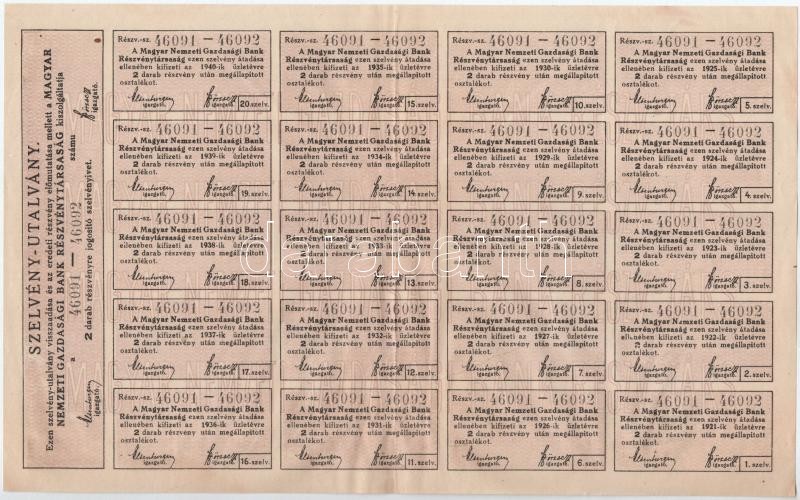 SZELVÉNY-UTALVÁNY.
Ezen szelvény-utalvány visszaadása és az eredeti részvény előmutatása mellett a MAGYAR
NEMZETI GAZDASÁGI BANK RÉSZVÉNYTÁRSASÁG kiszolgáltatja
a 46091 — 46092 számu
2 darab részvényre jogositó szelvényívet.
igazgató. igazgató.
Részv.-sz. 46091 — 46092
A Magyar Nemzeti Gazdasági Bank
Részvénytársaság ezen szelvény átadása
ellenében kifizeti az 1940-ik üzletévre
2 darab részvény után megállapitott
osztalékot.
igazgató. igazgató. 20.szelv.
Részv.-sz. 46091 — 46092
A Magyar Nemzeti Gazdasági Bank
Részvénytársaság ezen szelvény átadása
ellenében kifizeti az 1939-ik üzletévre
2 darab részvény után megállapitott
osztalékot.
igazgató. igazgató. 19.szelv.
Részv.-sz. 46091 — 46092
A Magyar Nemzeti Gazdasági Bank
Részvénytársaság ezen szelvény átadása
ellenében kifizeti az 1938-ik üzletévre
2 darab részvény után megállapitott
osztalékot.
igazgató. igazgató. 18.szelv.
Részv.-sz. 46091 — 46092
A Magyar Nemzeti Gazdasági Bank
Részvénytársaság ezen szelvény átadása
ellenében kifizeti az 1937-ik üzletévre
2 darab részvény után megállapitott
osztalékot.
igazgató. igazgató. 17.szelv.
Részv.-sz. 46091 — 46092
A Magyar Nemzeti Gazdasági Bank
Részvénytársaság ezen szelvény átadása
ellenében kifizeti az 1936-ik üzletévre
2 darab részvény után megállapitott
osztalékot.
igazgató. igazgató. 16.szelv.
Részv.-sz. 46091 — 46092
A Magyar Nemzeti Gazdasági Bank
Részvénytársaság ezen szelvény átadása
ellenében kifizeti az 1935-ik üzletévre
2 darab részvény után megállapitott
osztalékot.
igazgató. igazgató. 15.szelv.
Részv.-sz. 46091 — 46092
A Magyar Nemzeti Gazdasági Bank
Részvénytársaság ezen szelvény átadása
ellenében kifizeti az 1934-ik üzletévre
2 darab részvény után megállapitott
osztalékot.
igazgató. igazgató. 14.szelv.
Részv.-sz. 46091 — 46092
A Magyar Nemzeti Gazdasági Bank
Részvénytársaság ezen szelvény átadása
ellenében kifizeti az 1933-ik üzletévre
2 darab részvény után megállapitott
osztalékot.
igazgató. igazgató. 13.szelv.
Részv.-sz. 46091 — 46092
A Magyar Nemzeti Gazdasági Bank
Részvénytársaság ezen szelvény átadása
ellenében kifizeti az 1932-ik üzletévre
2 darab részvény után megállapitott
osztalékot.
igazgató. igazgató. 12.szelv.
Részv.-sz. 46091 — 46092
A Magyar Nemzeti Gazdasági Bank
Részvénytársaság ezen szelvény átadása
ellenében kifizeti az 1931-ik üzletévre
2 darab részvény után megállapitott
osztalékot.
igazgató. igazgató. 11.szelv.
Részv.-sz. 46091 — 46092
A Magyar Nemzeti Gazdasági Bank
Részvénytársaság ezen szelvény átadása
ellenében kifizeti az 1930-ik üzletévre
2 darab részvény után megállapitott
osztalékot.
igazgató. igazgató. 10.szelv.
Részv.-sz. 46091 — 46092
A Magyar Nemzeti Gazdasági Bank
Részvénytársaság ezen szelvény átadása
ellenében kifizeti az 1929-ik üzletévre
2 darab részvény után megállapitott
osztalékot.
igazgató. igazgató. 9. szelv.
Részv.-sz. 46091 — 46092
A Magyar Nemzeti Gazdasági Bank
Részvénytársaság ezen szelvény átadása
ellenében kifizeti az 1928-ik üzletévre
2 darab részvény után megállapitott
osztalékot.
igazgató. igazgató. 8. szelv.
Részv.-sz. 46091 — 46092
A Magyar Nemzeti Gazdasági Bank
Részvénytársaság ezen szelvény átadása
ellenében kifizeti az 1927-ik üzletévre
2 darab részvény után megállapitott
osztalékot.
igazgató. igazgató. 7. szelv.
Részv.-sz. 46091 — 46092
A Magyar Nemzeti Gazdasági Bank
Részvénytársaság ezen szelvény átadása
ellenében kifizeti az 1926-ik üzletévre
2 darab részvény után megállapitott
osztalékot.
igazgató. igazgató. 6. szelv.
Részv.-sz. 46091 — 46092
A Magyar Nemzeti Gazdasági Bank
Részvénytársaság ezen szelvény átadása
ellenében kifizeti az 1925-ik üzletévre
2 darab részvény után megállapitott
osztalékot.
igazgató. igazgató. 5. szelv.
Részv.-sz. 46091 — 46092
A Magyar Nemzeti Gazdasági Bank
Részvénytársaság ezen szelvény átadása
ellenében kifizeti az 1924-ik üzletévre
2 darab részvény után megállapitott
osztalékot.
igazgató. igazgató. 4. szelv.
Részv.-sz. 46091 — 46092
A Magyar Nemzeti Gazdasági Bank
Részvénytársaság ezen szelvény átadása
ellenében kifizeti az 1923-ik üzletévre
2 darab részvény után megállapitott
osztalékot.
igazgató. igazgató. 3. szelv.
Részv.-sz. 46091 — 46092
A Magyar Nemzeti Gazdasági Bank
Részvénytársaság ezen szelvény átadása
ellenében kifizeti az 1922-ik üzletévre
2 darab részvény után megállapitott
osztalékot.
igazgató. igazgató. 2. szelv.
Részv.-sz. 46091 — 46092
A Magyar Nemzeti Gazdasági Bank
Részvénytársaság ezen szelvény átadása
ellenében kifizeti az 1921-ik üzletévre
2 darab részvény után megállapitott
osztalékot.
igazgató. igazgató. 1. szelv.
darabanth